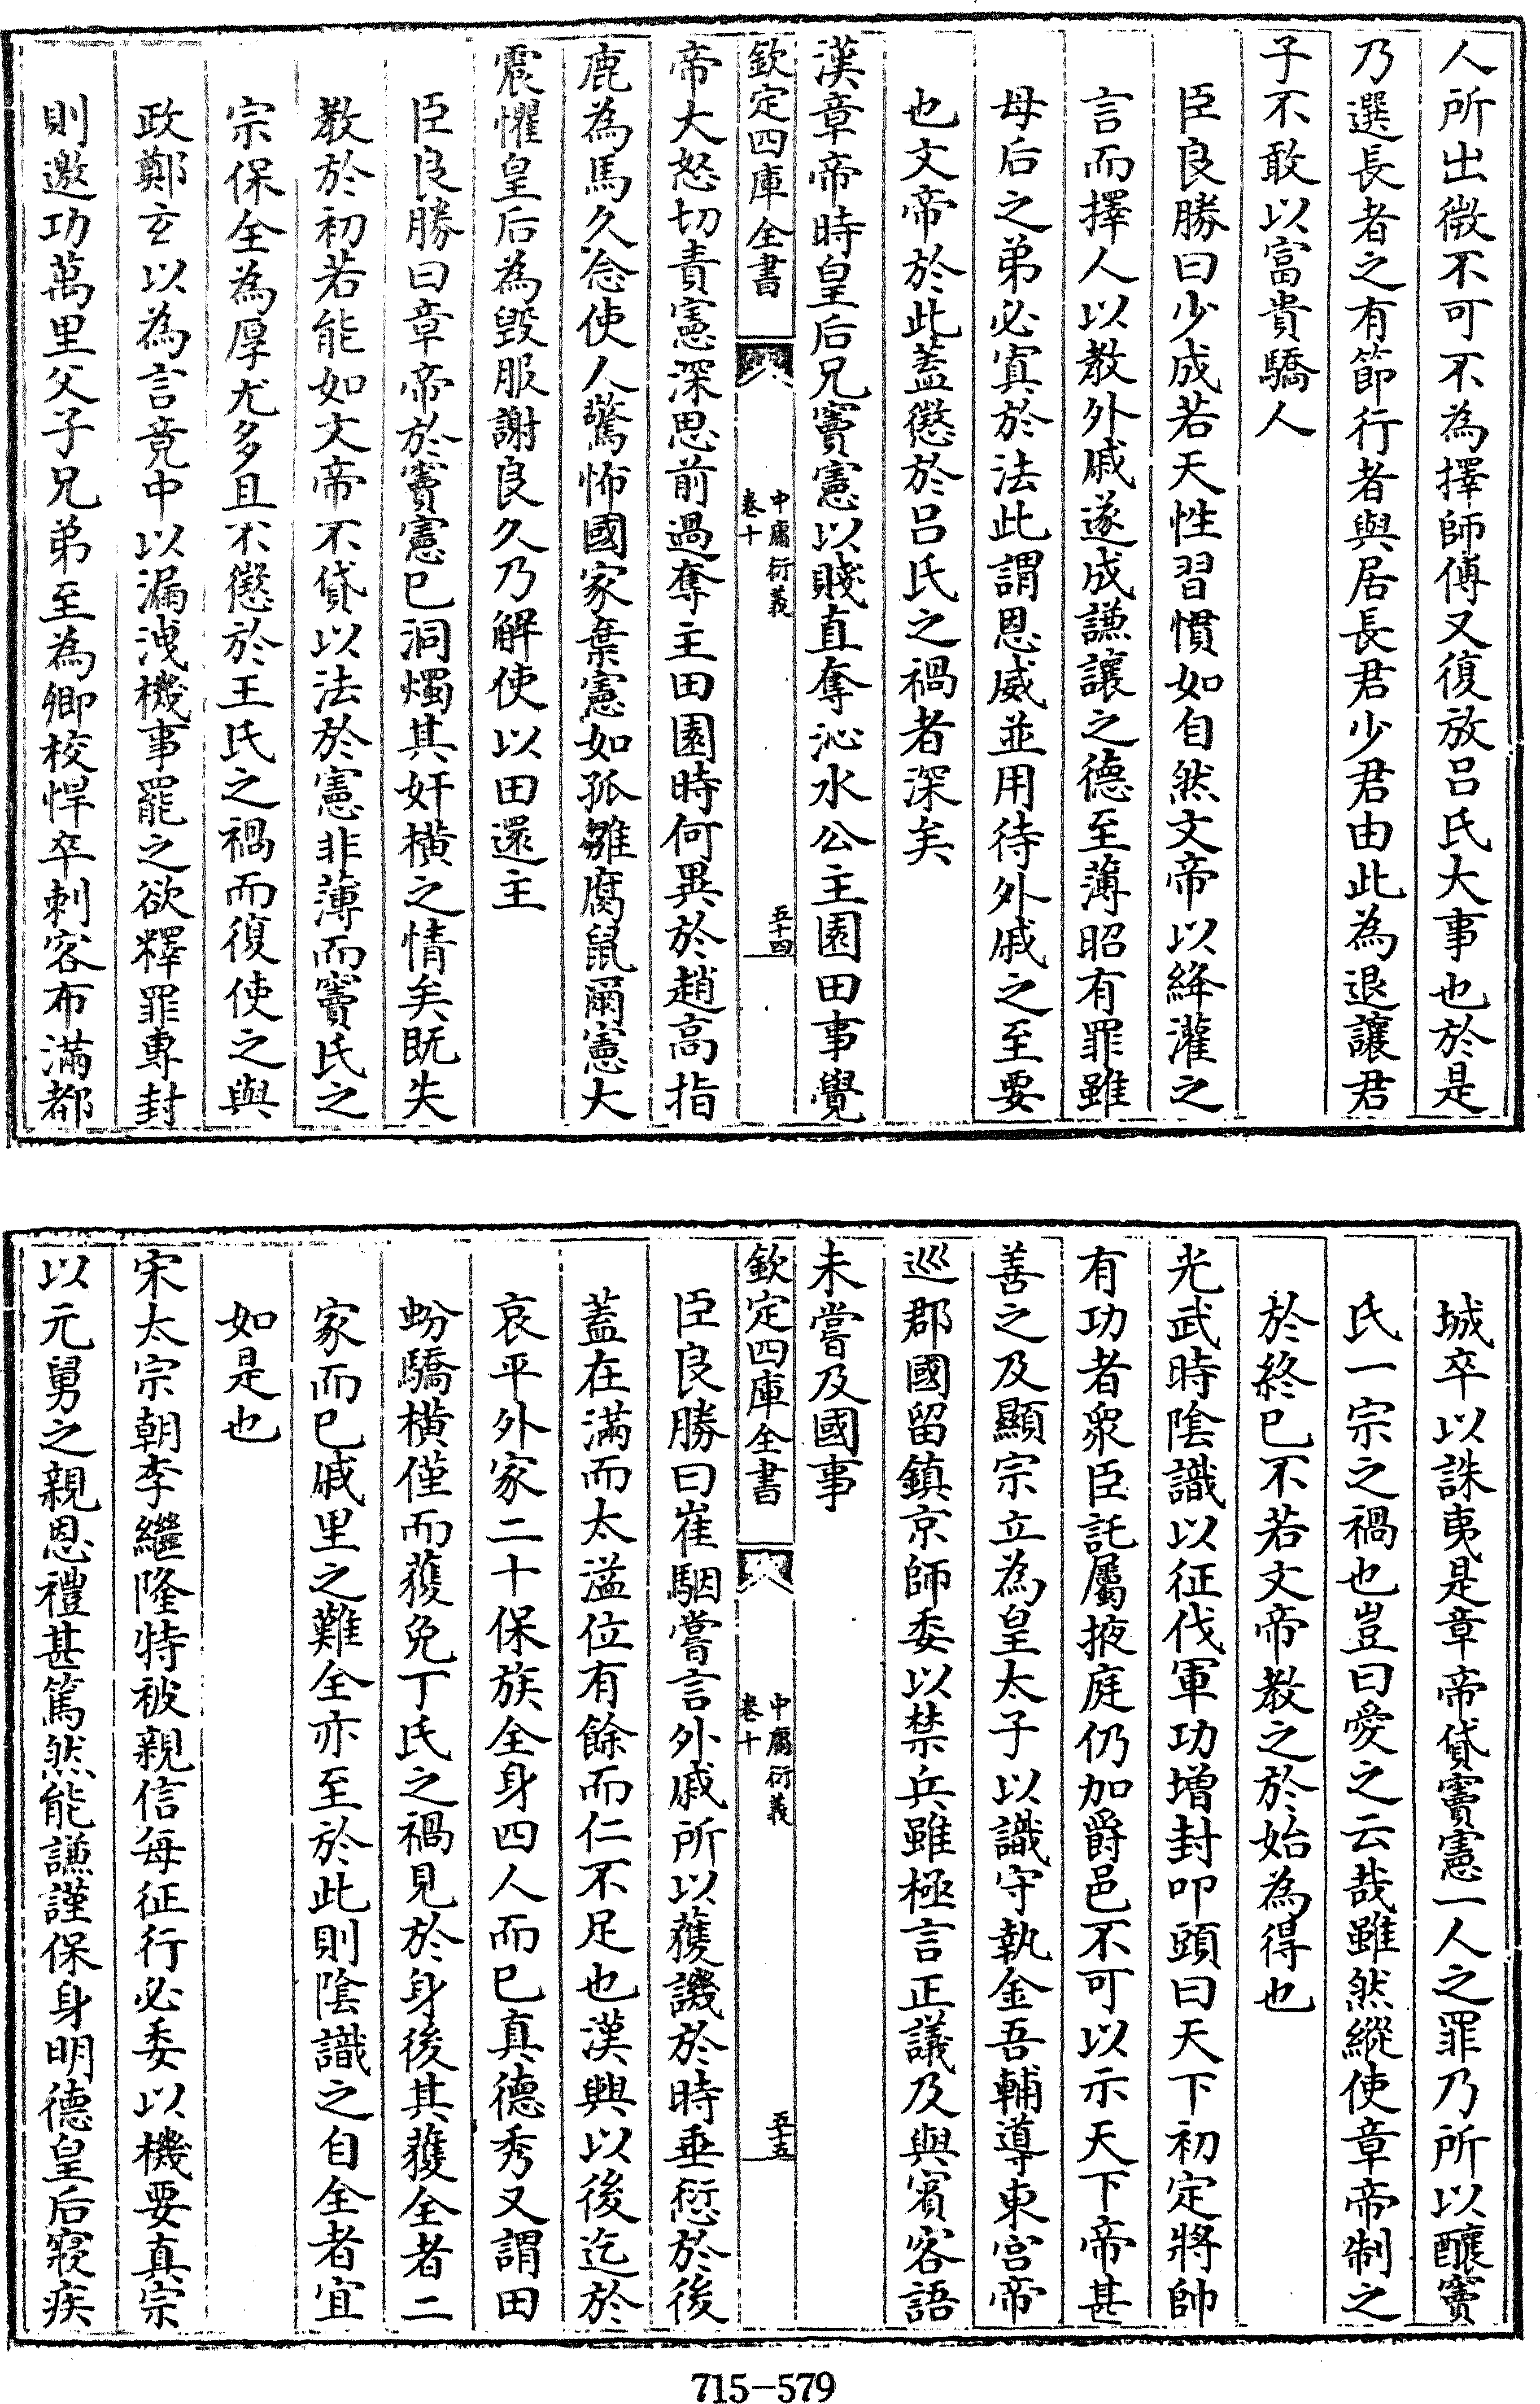 人所出微不可不為擇師傅又復放吕氏大事也於是
乃選長者之有節行者與居長君少君由此為退讓君
子不敢以富貴驕人
臣良勝曰少成若天性習慣如自然文帝以絳灌之
言而擇人以教外戚遂成謙讓之德至薄昭有罪雖
母后之弟必寘於法此謂恩威並用待外戚之至要
也文帝於此蓋懲於吕氏之禍者深矣
漢章帝時皇后兄竇憲以賤直奪沁水公主園田事覺
欽定四庫全書
中庸衍義
卷十
五十四
帝大怒切責憲深思前過奪主田園時何異於趙高指
鹿為馬久念使人驚怖國家棄憲如孤雛腐鼠爾憲大
震懼皇后為毀服謝良久乃解使以田還主
臣良勝曰章帝於竇憲已洞燭其奸橫之情矣既失
教於初若能如文帝不貸以法於憲非薄而竇氏之
宗保全為厚尤多且不懲於王氏之禍而復使之與
政鄭玄以為言竟中以漏洩機事罷之欲釋罪專封
則邀功萬里父子兄弟至為卿校悍卒刺客布滿都
城卒以誅夷是章帝貸竇憲一人之罪乃所以釀竇
氏一宗之禍也豈曰愛之云哉雖然縱使章帝制之
於終已不若文帝教之於始為得也
光武時陰識以征伐軍功增封叩頭曰天下初定將帥
有功者衆臣託屬掖庭仍加爵邑不可以示天下帝甚
善之及顯宗立為皇太子以識守執金吾輔導東宫帝
巡郡國留鎮京師委以禁兵雖極言正議及與賓客語
未嘗及國事
欽定四庫全書
中庸衍義
卷十
五十五
臣良勝曰崔駰嘗言外戚所以獲譏於時垂愆於後
蓋在滿而太溢位有餘而仁不足也漢興以後迄於
哀平外家二十保族全身四人而已真德秀又謂田
蚡驕橫僅而獲免丁氏之禍見於身後其獲全者二
家而已戚里之難全亦至於此則陰識之自全者宜
如是也
宋太宗朝李繼隆特被親信每征行必委以機要真宗
以元舅之親恩禮甚篤然能謙謹保身明德皇后寢疾
715-579